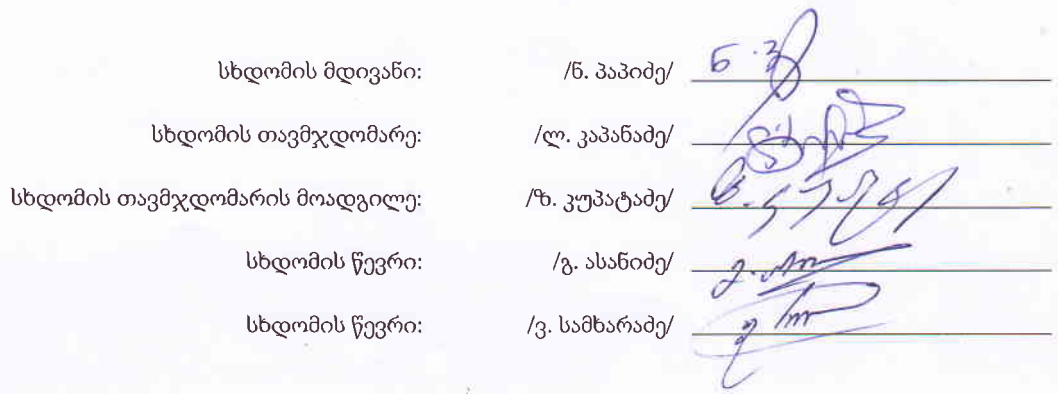 სხდომის მდივანი: /ნ. პაპიძე/
სხდომის თავმჯდომარე: /ლ. კაპანაძე/
სხდომის თავმჯდომარის მოადგილე: /ზ. კუპატაძე/
სხდომის წევრი: /გ. ასანიძე/
სხდომის წევრი: /ვ. სამხარაძე/